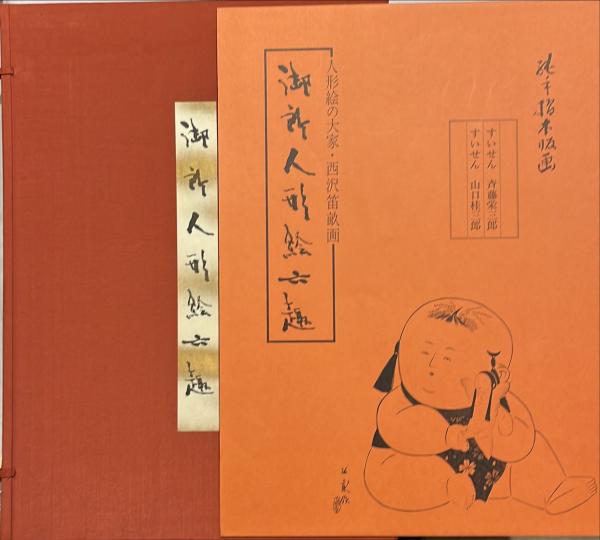 純手摺木版画
すいせん 斉藤栄三郎
すいせん 山口桂三郎
人形絵の大家・西沢笛畝画
御所人形絵六趣
御所人形絵六趣